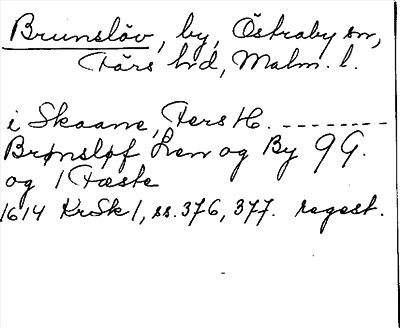 Brunslöv, by, Östraby sn,
Färs hd, Malm. l.
i Skaane, Fers H. --------
Brønsløf Len og By 9 G.
og 1 Fæste
1614 KrSk 1, ss. 376, 377. regest.